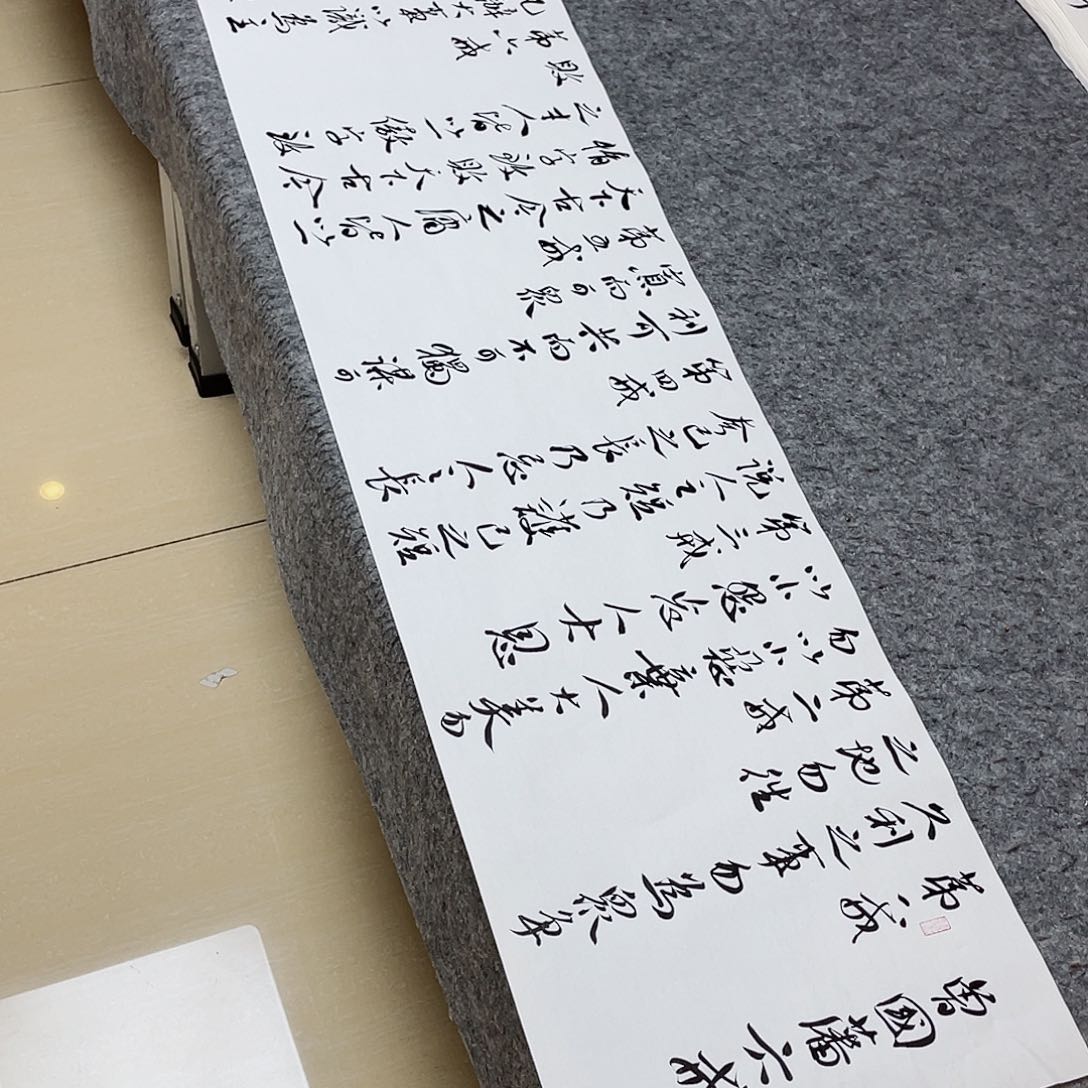 曾國藩六戒
第一戒
久利之事勿為眾争
之地勿往
第二戒
勿以小惡棄人大美勿
以小怨忘人大恩
第三戒
說人之短乃護己之短
夸己之長乃忌人之長
第四戒
利可共而不可獨謀可
寡而可眾
第五戒
天下古今之庸人皆以一
惰字致敗天下古今
之才人皆以一傲字致
敗
第六戒
辦大事以識為主